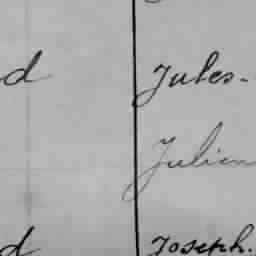 d Jules-
Julien
d Joseph.